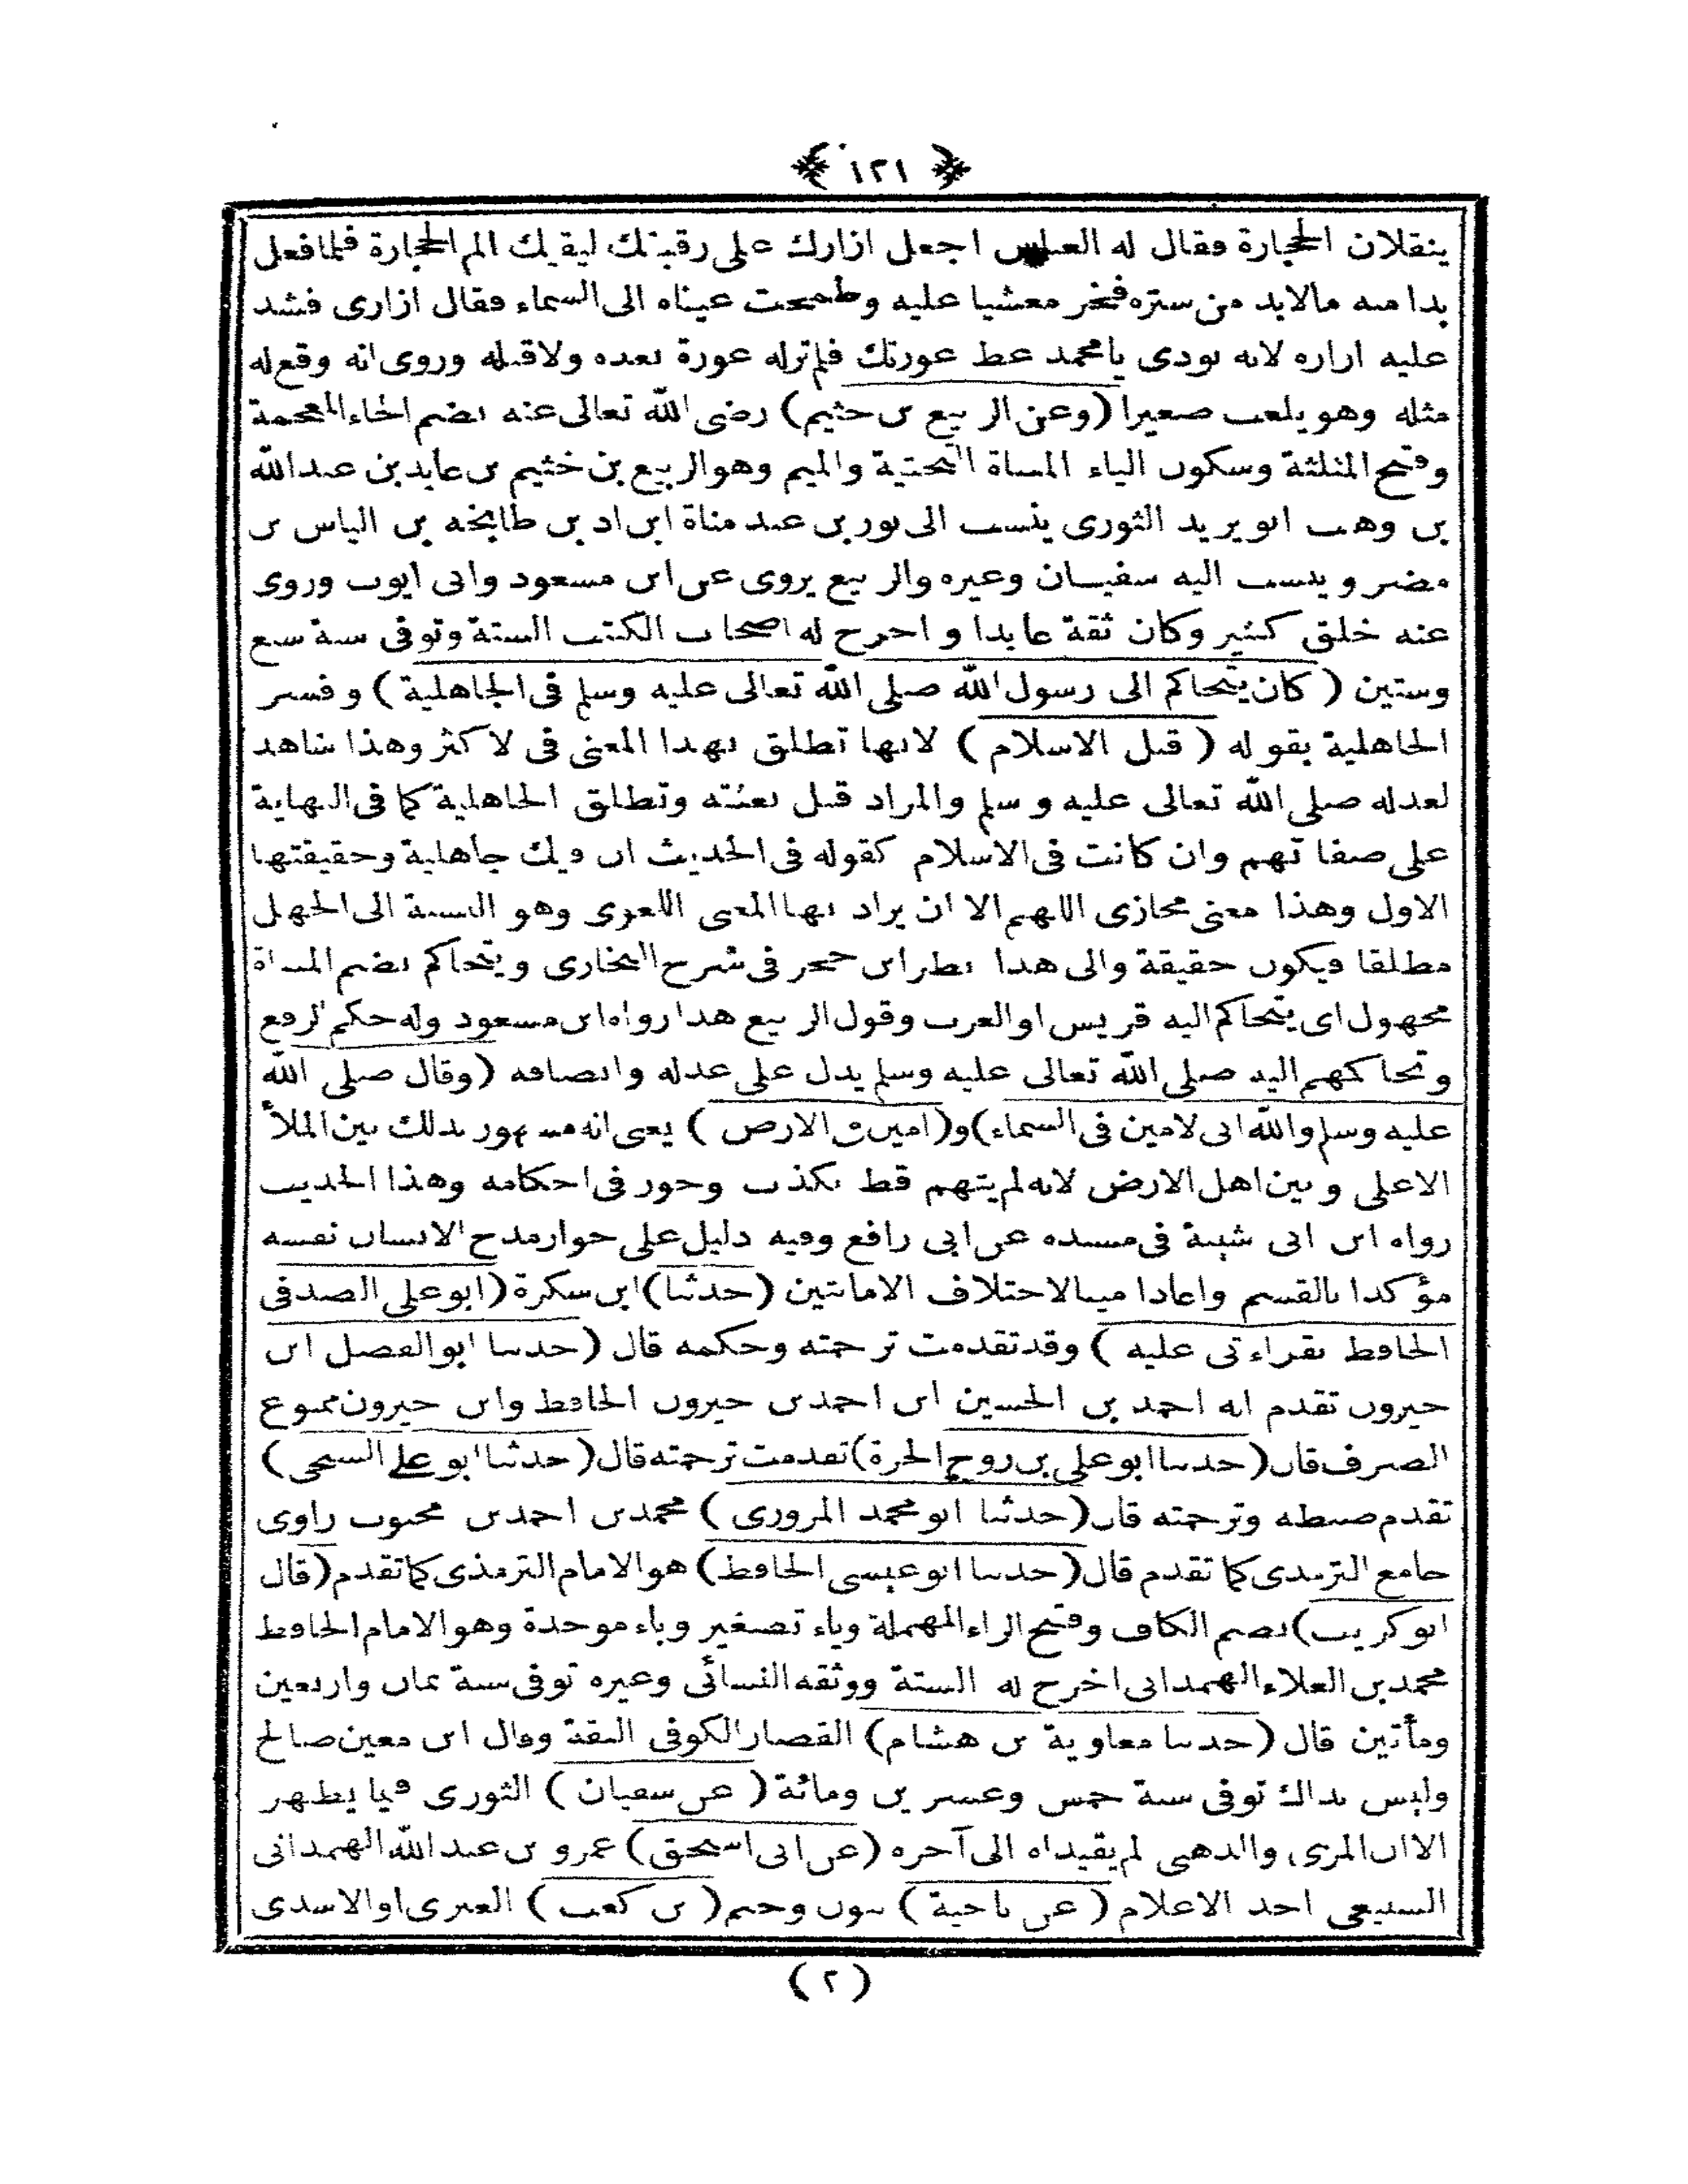 ﴿ ١٢١ ﴾
ينقلان الحجارة فقال له العباس اجعل ازارك على رقبتك ليقيك الم الحجارة فلما فعل
بدا منه مالابد من ستره فخر مغشيا عليه وطمحت عيناه الى السماء فقال ازارى فشد
عليه ازاره لانه نودى يا محمد غط عورتك فلم تر له عورة بعده ولا قبله وروى انه وقع له
مثله وهو يلعب صغيرا (وعن الربيع بن خثيم) رضى الله تعالى عنه بضم الخاء المعجمة
وفتح المثلثة وسكون الياء المثناة التحتية والميم وهو الربيع بن خثيم بن عايد بن عبد الله
بن وهب ابو يزيد الثورى ينسب الى ثور بن عبد مناة ابن اد بن طابخه بن الياس بن
مضر وينسب اليه سفيان وغيره والربيع يروى عن ابن مسعود وابى ايوب وروى
عنه خلق كثير وكان ثقة عابدا واخرج له اصحاب الكتب الستة وتوفى سنة سبع
وستين ( كان يتحاكم الى رسول الله صلى الله تعالى عليه وسلم فى الجاهلية ) وفسر
الجاهلية بقوله ( قبل الاسلام ) لانها تطلق بهذا المعنى فى لاكثر وهذا شاهد
لعدله صلى الله تعالى عليه وسلم والمراد قبل بعثته وتطلق الجاهلية كما فى النهاية
على صفاتهم وان كانت فى الاسلام كقوله فى الحديث ان فيك جاهلية وحقيقتها
الاول وهذا معنى مجازى اللهم الا ان يراد بها المعنى اللغوى وهو النسبة الى الجهل
مطلقا فيكون حقيقة والى هذا نظر ابن حجر فى شرح البخارى ويتحاكم بضم المثناة
مجهول اى يتحاكم اليه قريس او العرب وقول الربيع هذا رواه ابن مسعود وله حكم الرفع
وتحاكمهم اليه صلى الله تعالى عليه وسلم يدل على عدله وانصافه (وقال صلى الله
عليه وسلم والله انى لامين فى السماء) و(امين فى الارض ) يعنى انه مشهور بذلك بين الملأ
الاعلى وبين اهل الارض لانه لم يتهم قط بكذب وجور فى احكامه وهذا الحديث
رواه ابن ابى شيبة فى مسنده عن ابى رافع وفيه دليل على جواز مدح الانسان نفسه
مؤكدا بالقسم واعاد امينا لاختلاف الامانتين (حدثنا) ابن سكرة (ابو على الصدفى
الحافظ بقراءتى عليه ) وقد تقدمت ترجمته وحكمه قال (حدثنا ابو الفضل ابن
خيرون تقدم انه احمد بن الحسين ابن احمد بن خيرون الحافظ وابن خيرون ممنوع
الصرف قال (حدثنا ابو على بن زوج الحرة) تقدمت ترجمته قال (حدثنا ابو على السنجى )
تقدم ضبطه وترجمته قال (حدثنا ابو محمد المروزى ) محمد بن احمد بن محبوب راوى
جامع الترمذى كما تقدم قال (حدثنا ابو عيسى الحافظ) هو الامام الترمذى كما تقدم (قال
ابو كريب) بضم الكاف وفتح الراء المهملة وياء تصغير وباء موحدة وهو الامام الحافظ
محمد بن العلاء الهمدانى اخرج له الستة ووثقه النسائى وغيره توفى سنة ثمان واربعين
ومأتين قال (حدثنا معاوية بن هشام) القصار الكوفى الثقة وقال ابن معين صالح
وليس بذاك توفى سنة خمس وعشرين ومائة ( عن سفيان ) الثورى فيما يظهر
الا ان المزى والذهبى لم يقيداه الى آخره (عن ابى اسحق) عمرو بن عبد الله الهمدانى
السبيعى احد الاعلام ( عن ناجية ) بنون وجيم ( بن كعب ) العنزى او الاسدى
( ٢ )